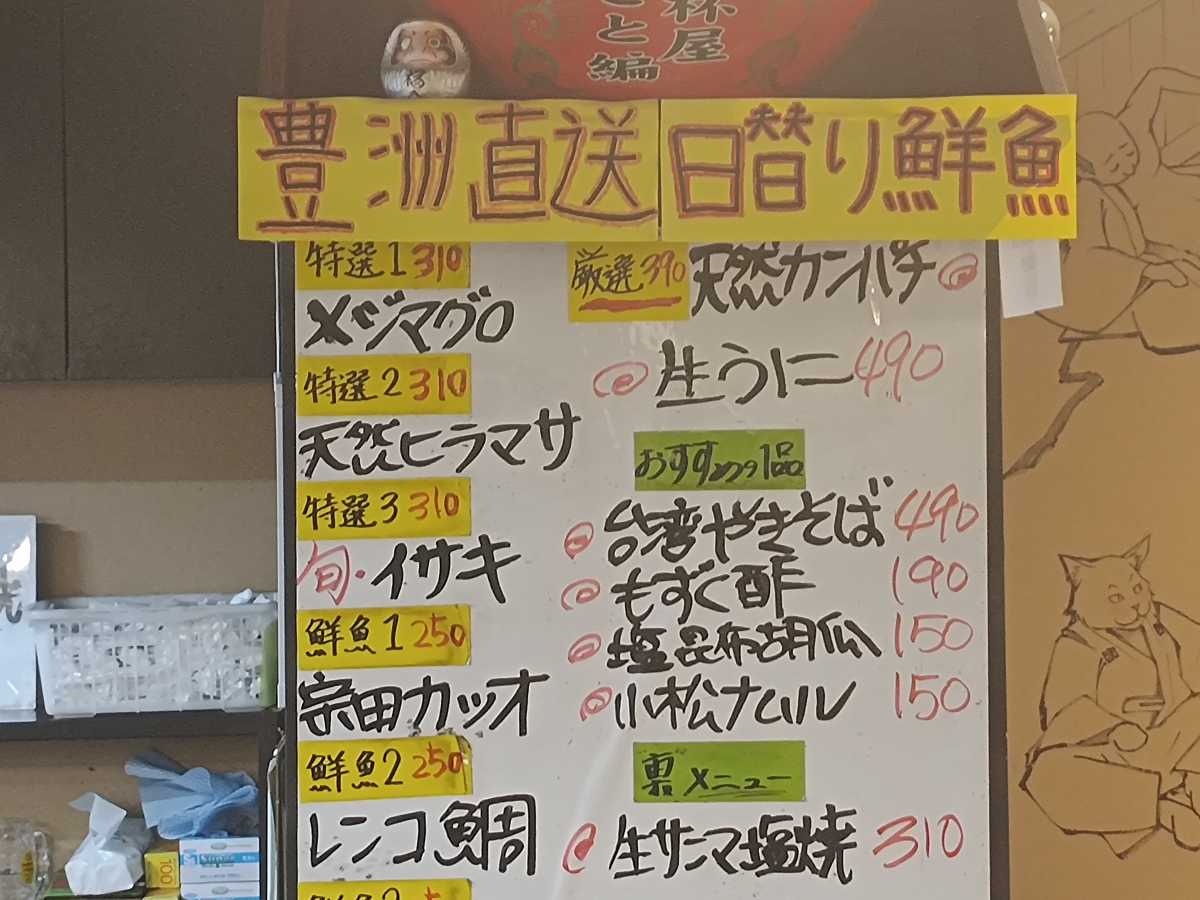 豊洲直送 日替り鮮魚
特選1 310
メジマグロ
特選2 310
天然ヒラマサ
特選3 310
旬・イサキ
鮮魚1 250
宗田カツオ
鮮魚2 250
レンコ鯛
厳選390 天然カンパチ
生うに 490
おすすめの1品
台湾やきそば 490
もずく酢 190
塩昆布胡瓜 150
小松ナムル 150
裏メニュー
生サンマ塩焼 310